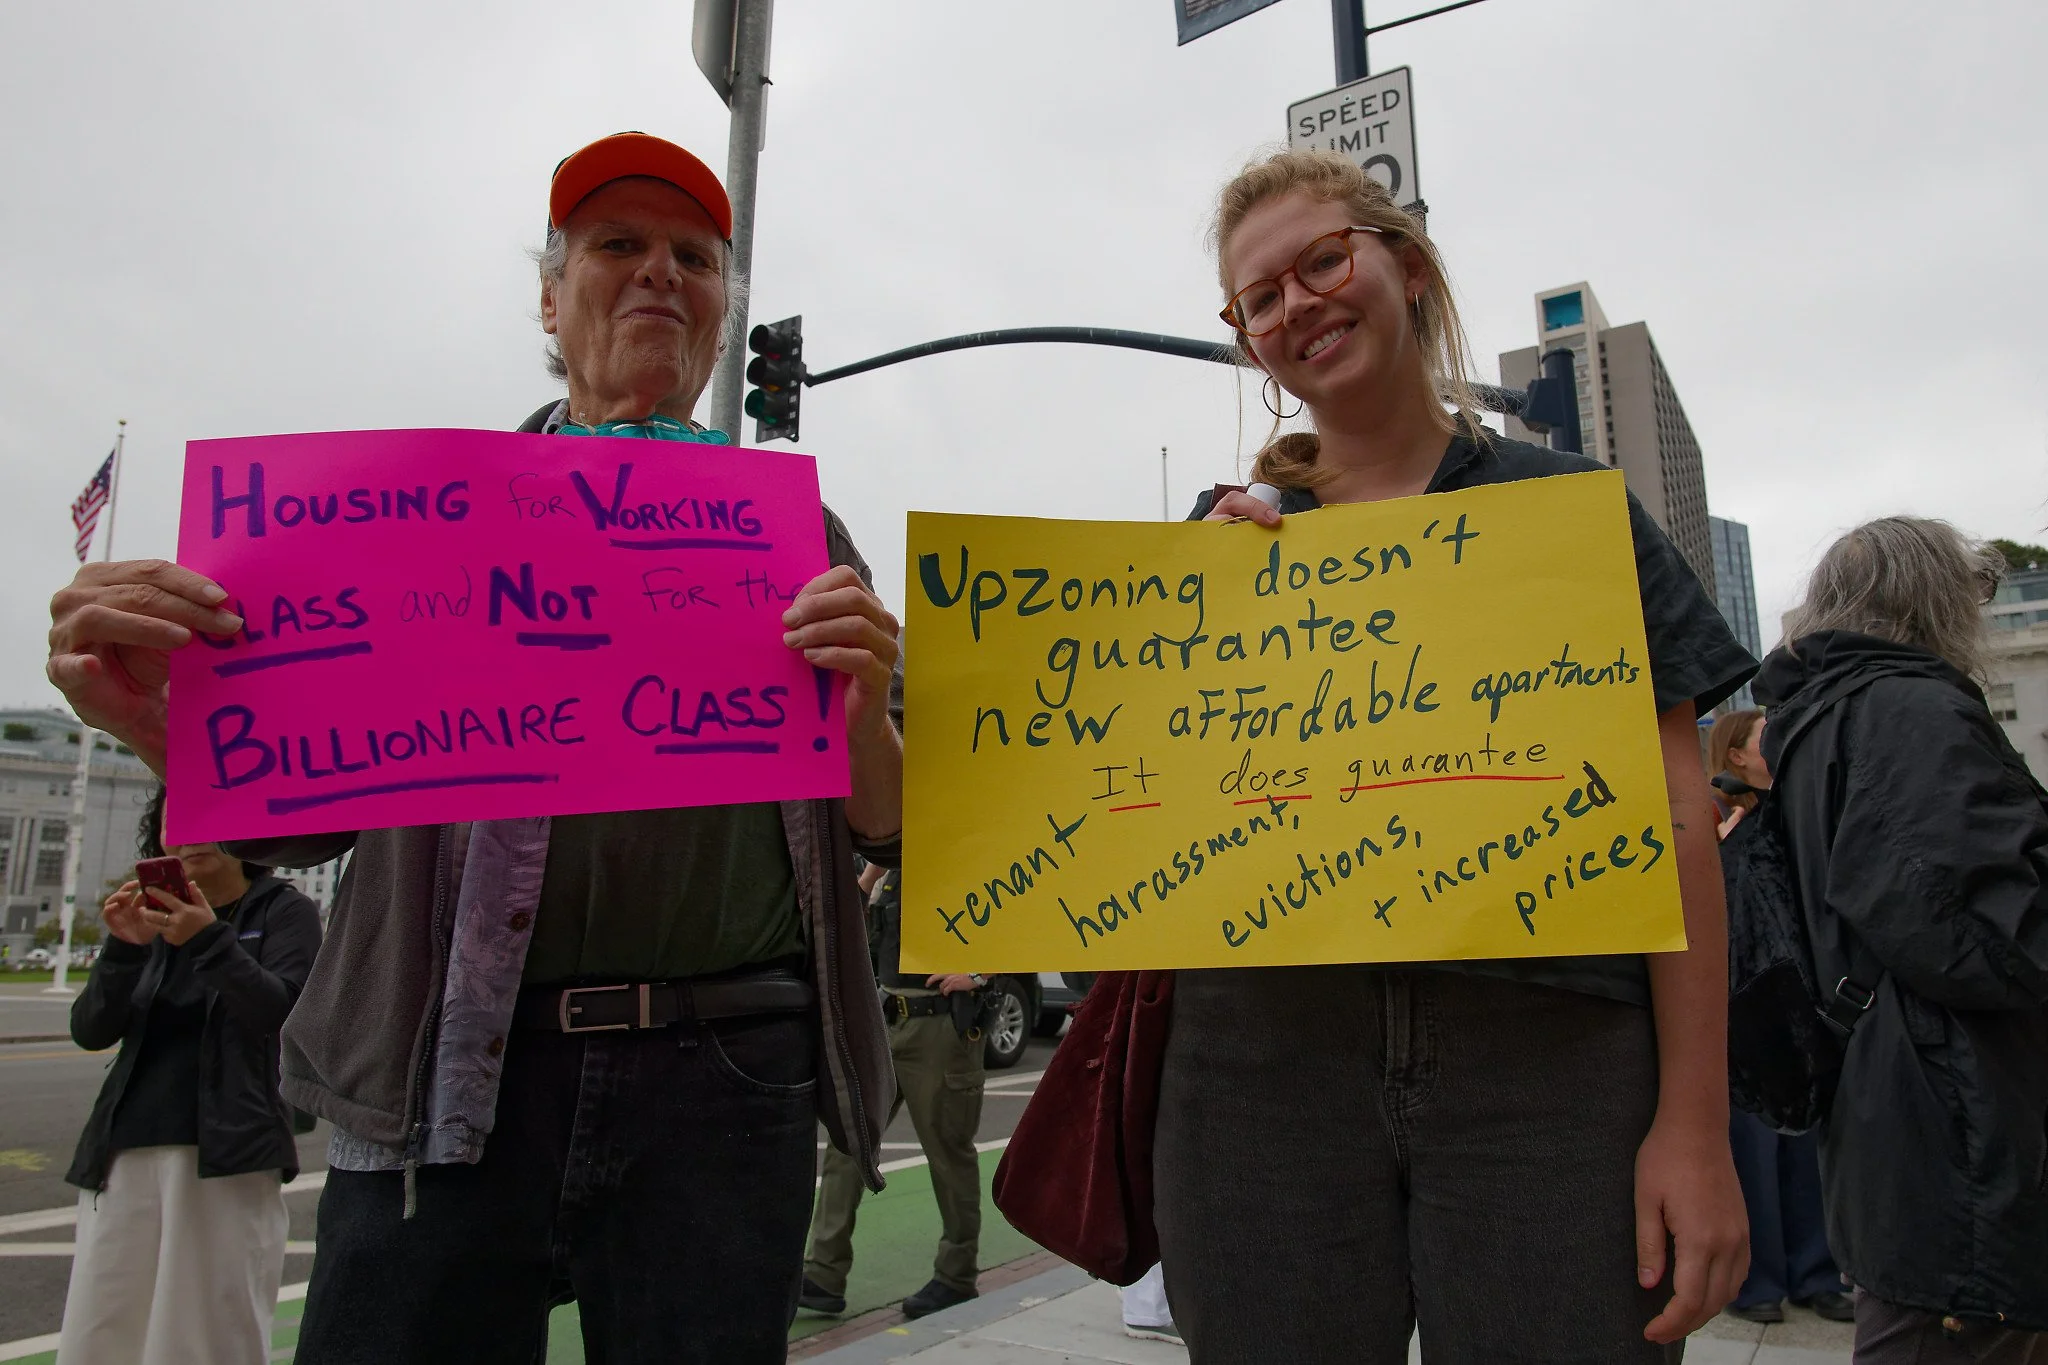 SPEED
LIMIT
HOUSING for WORKING
CLASS and NOT FOR the
BILLIONAIRE CLASS!
Upzoning doesn't
guarantee
new affordable apartments
It does guarantee
tenant harassment, evictions, + increased prices